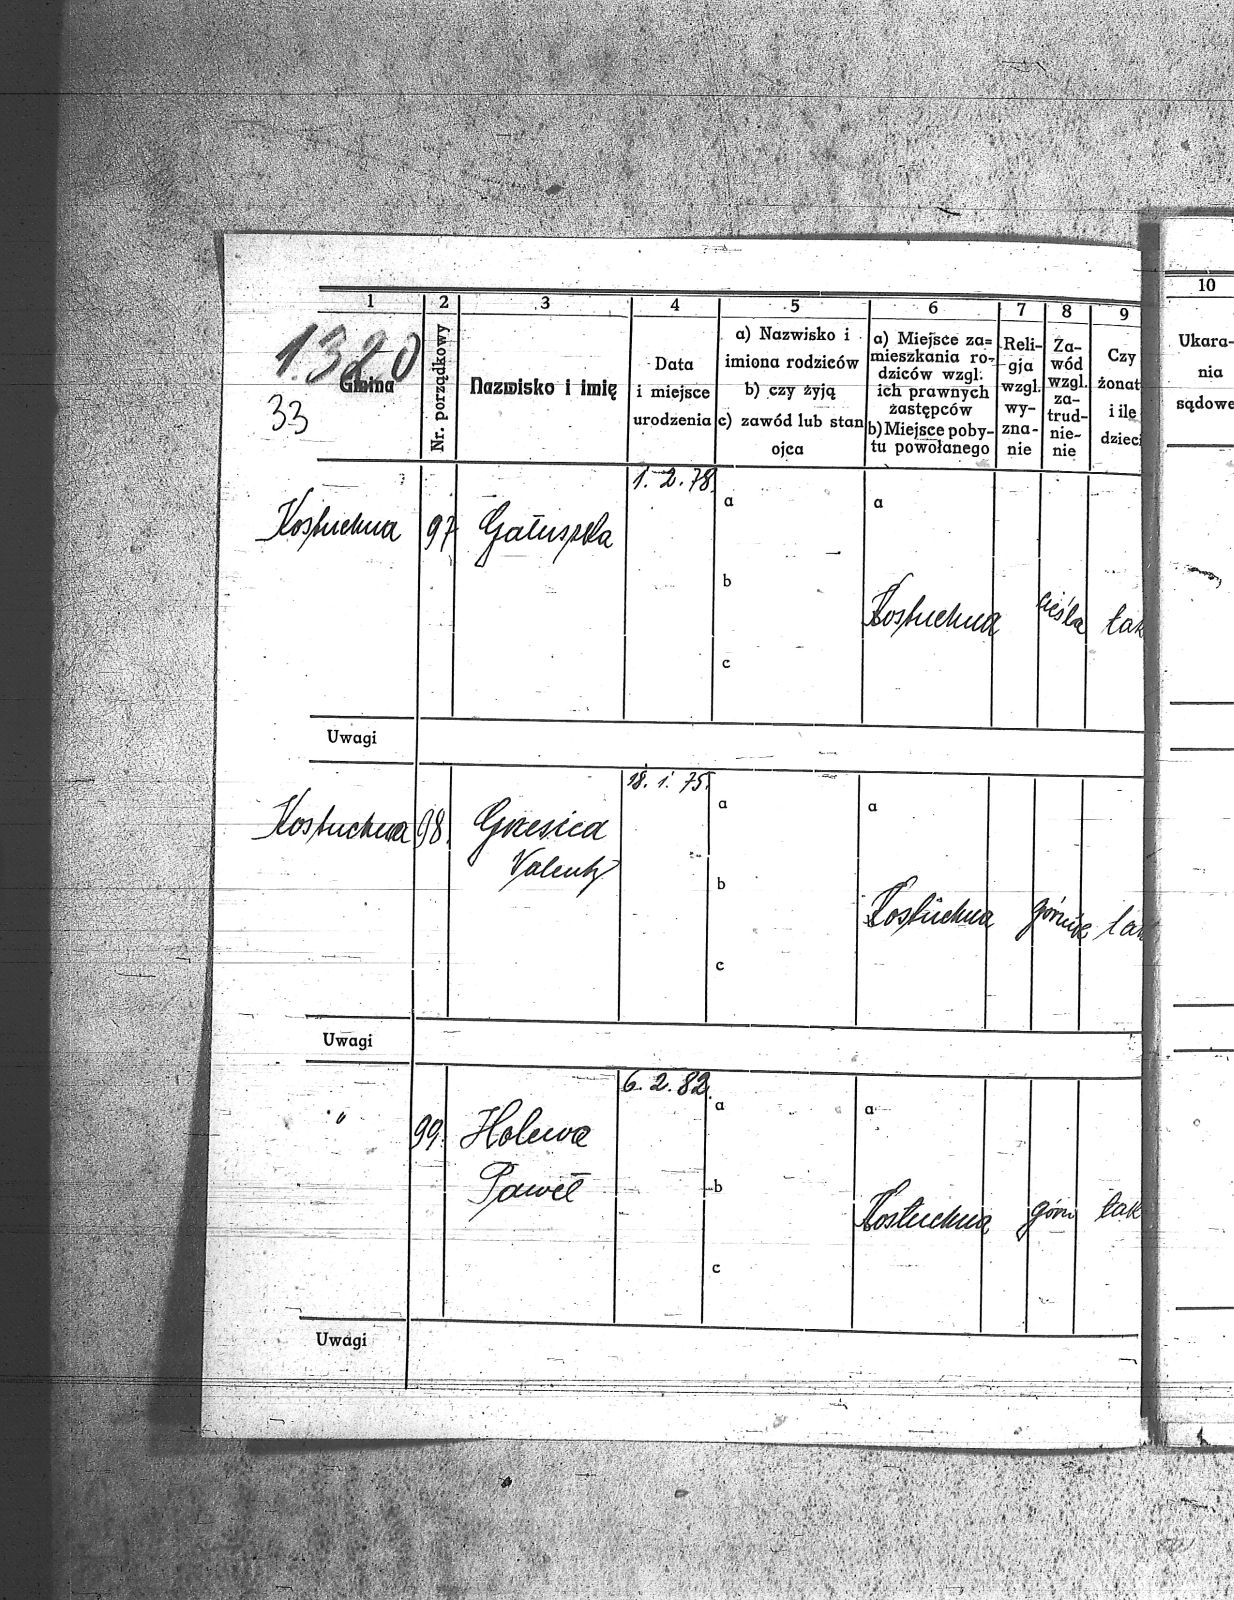 1 2 3 4 5 6 7 8 9 10
1320
Gmina
33
Nr. porządkowy
Nazwisko i imię
Data
i miejsce
urodzenia
a) Nazwisko i
imiona rodziców
b) czy żyją
c) zawód lub stan
ojca
a) Miejsce za=
mieszkania ro-
dziców wzgl.
ich prawnych
zastępców
b) Miejsce poby-
tu powołanego
Reli-
gja
wzgl.
wy-
zna-
nie
Za-
wód
wzgl.
za-
trud-
nie-
nie
Czy
żonat
i ile
dzieci
Ukara-
nia
sądowe
1. 2. 78
Kostuchna 97 Gałuszka
a a
b
Kostuchna cieśla tak
c
Uwagi
18. 1. 75.
Kostuchna 98. Grzesica
Valenty
a a
b
Kostuchna górnik tak
c
Uwagi
6. 2. 82.
" 99. Holewa
Paweł
a a
b
Kostuchna górn tak
c
Uwagi